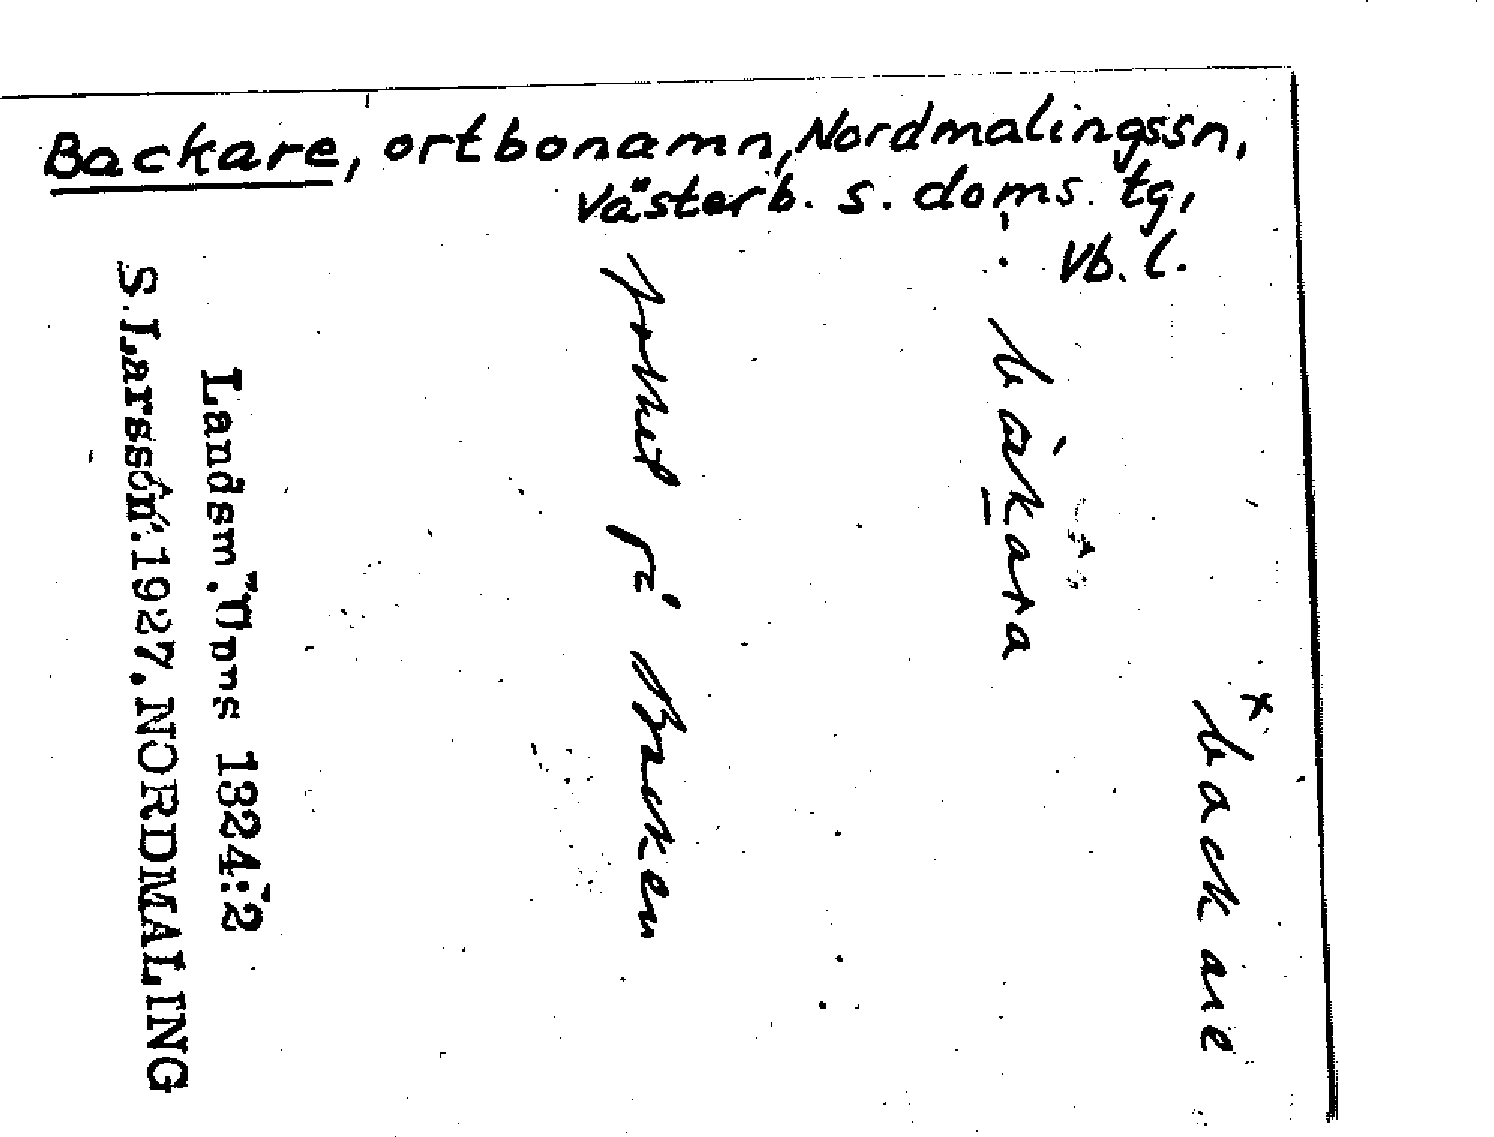 Backare, ortbonamn, Nordmalingssn,
Västerb. s. doms. tg,
Vb. l.
*backare
bàkara
folket på Backen
Landsm. Upps 1324:2
S. Larsson. 1927. NORDMALING